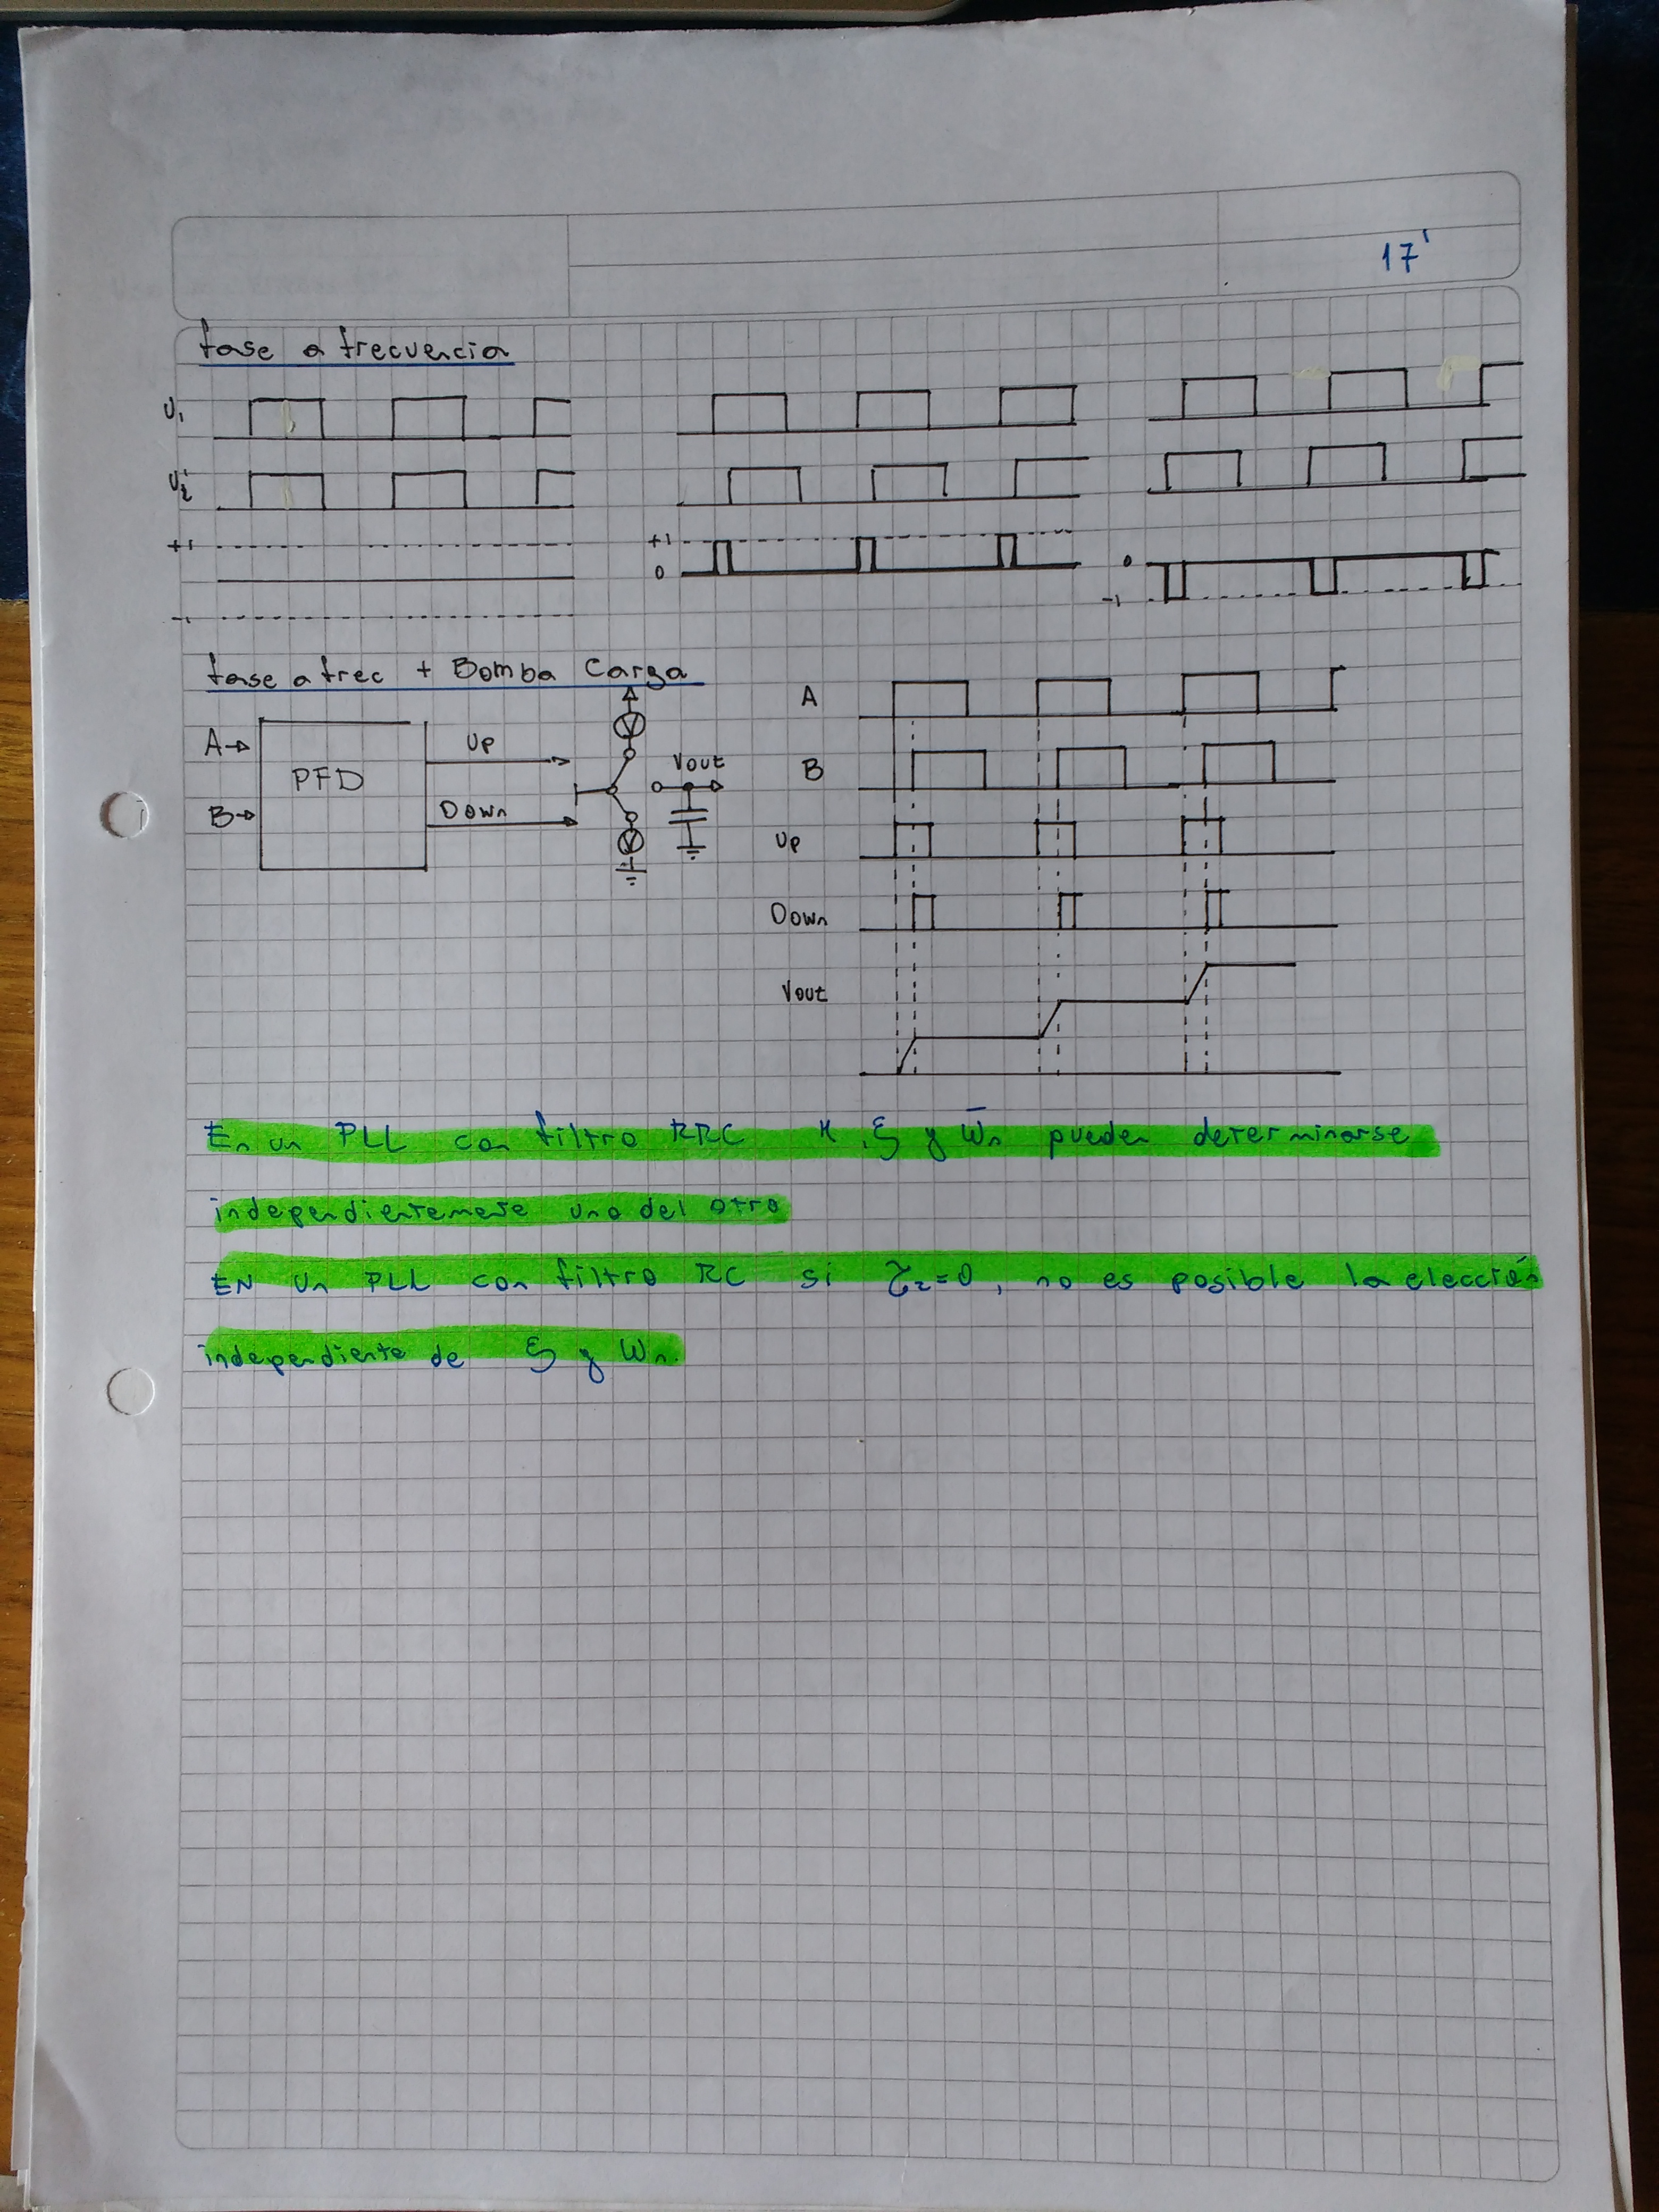 17'
fase a frecuencia
U1
U2'
+1
-1
+1
0
0
-1
fase a frec + Bomba Carga
A
B
PFD
Up
Down
Vout
A
B
Up
Down
Vout
En un PLL con filtro RRC K, ξ y ω̄n pueden determinarse
independientemete uno del otro
EN un PLL con filtro RC si τ2=0, no es posible la elección
independiente de ξ y ωn.